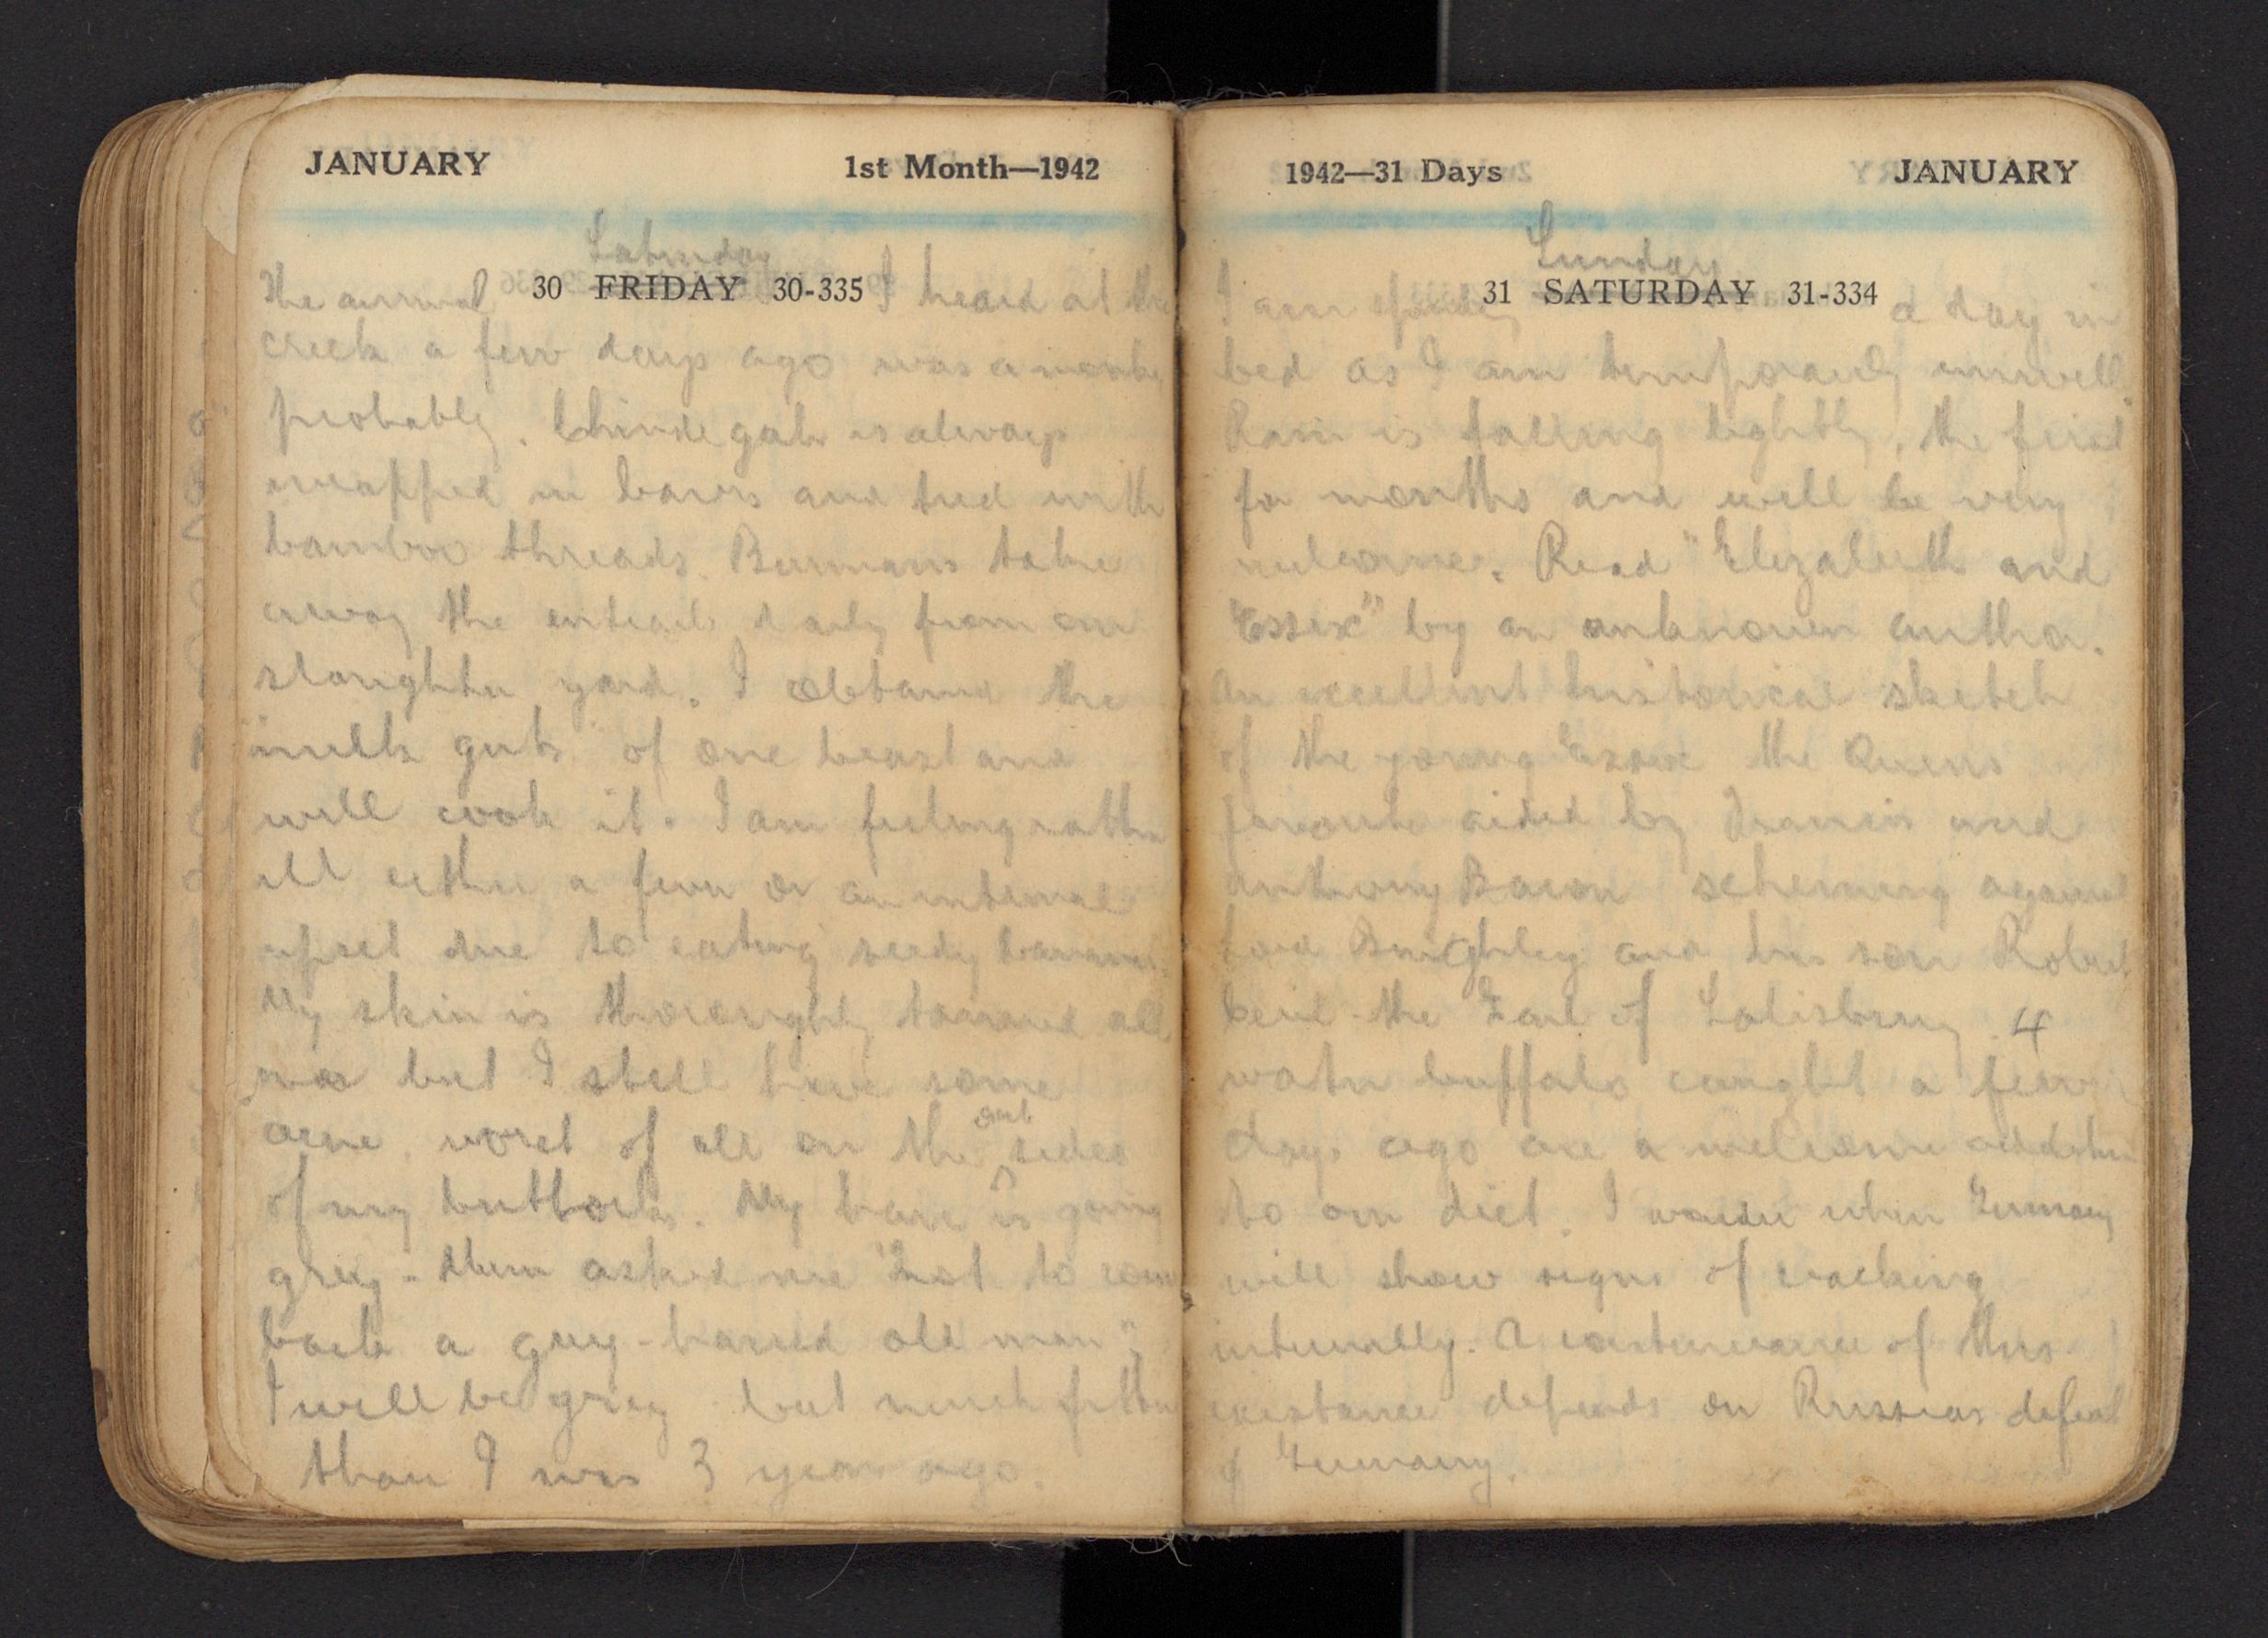 JANUARY 1st Month—1942
Saturday
30 FRIDAY 30-335
The animal I heard at the
creek a few days ago was a monkey
probably. is always
wrapped in leaves and tied with
bamboo threads. Burmans take
away the entrails daily from our
slaughter yard. I obtained the
"milk guts" of one beast and
will cook it. I am feeling rather
ill either a fever or an internal
upset due to eating seedy bananas.
My skin is thoroughly tanned all
over but I still have some
acne, worst of all on the out sides
of my buttocks. My hair is going
grey - asked me "not to come
back a grey-haired old man".
I will be grey but much fitter
than I was 3 years ago.
1942—31 Days JANUARY
Sunday
31 SATURDAY 31-334
I am spending a day in
bed as I am temporarily unwell.
Rain is falling lightly, the first
for months and will be very
welcome. Read "Elizabeth and
Essex" by an unknown author.
An excellent historical sketch
of the young Essex the Queens
favourite aided by Francis and
Anthony Bacon scheming against
Lord Burghley and his son Robert
Cecil the Earl of Salisbury. 4
water buffalo caught a few
days ago are a welcome addition
to our diet. I wonder when Germany
will show signs of cracking
internally. A continuance of this
existance depends on Russias defeat
of Germany.